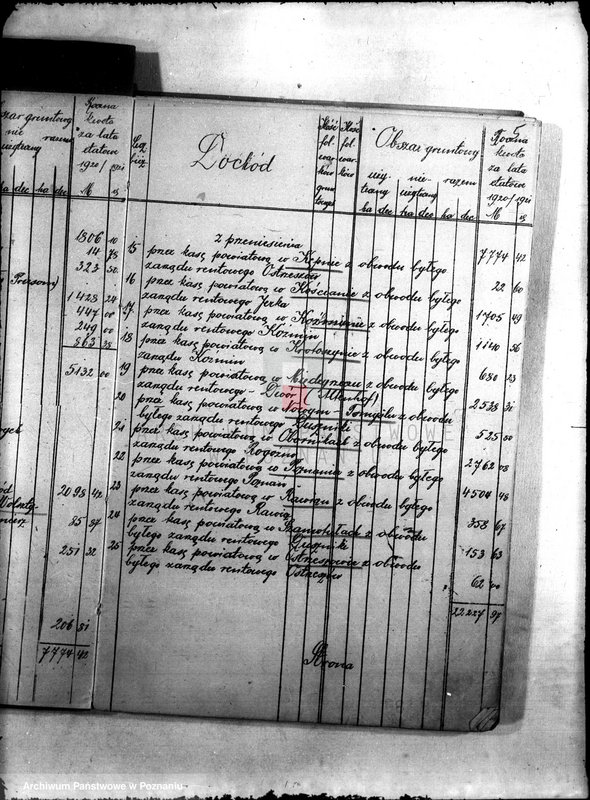 Obszar gruntowy
razem
ha dec ha dec
Roczna
kwota
za lata
etatowe
1920/1921
M
1806 10
14 78
323 30
1428 24
447 00
249 00
863 28
5132 00
2098 42
85 87
251 32
206 81
7774 42
Dochód
Obszar gruntowy
razem
ha dec ha dec ha dec
Roczna
kwota
za lata
etatowe
1920/1921
M
Z przeniesienia 7774 42
15 przez kasę powiatową w Kępnie z obwodu byłego
zarządu rentowego Ostrzeszów 22 60
16 przez kasę powiatową w Kościanie z obwodu byłego
zarządu rentowego Jerka 1705 49
17 przez kasę powiatową w Koźminie z obwodu byłego
zarządu rentowego Koźmin
18 przez kasę powiatową w Krotoszynie z obwodu byłego
zarządu Koźmin 680 23
19 przez kasę powiatową w z obwodu byłego
zarządu rentowego - Dwór (Altenhof) 2538 31
20 przez kasę powiatową w Nowym - Tomyślu z obwodu
byłego zarządu rentowego Duszniki 525 00
21 przez kasę powiatową w Obornikach z obwodu byłego
zarządu rentowego Rogoźno 2762 08
22 przez kasę powiatową w Poznaniu z obwodu byłego
zarządu rentowego Poznań 4504 48
23 przez kasę powiatową w Rawiczu z obwodu byłego
zarządu rentowego Rawicz 358 67
24 przez kasę powiatową w Szamotułach z obwodu
byłego zarządu rentowego Duszniki 153 63
25 przez kasę powiatową w Ostrzeszowie z obwodu
byłego zarządu rentowego Ostrzeszów 62 00
22227 97
Strona
Archiwum Państwowe w Poznaniu